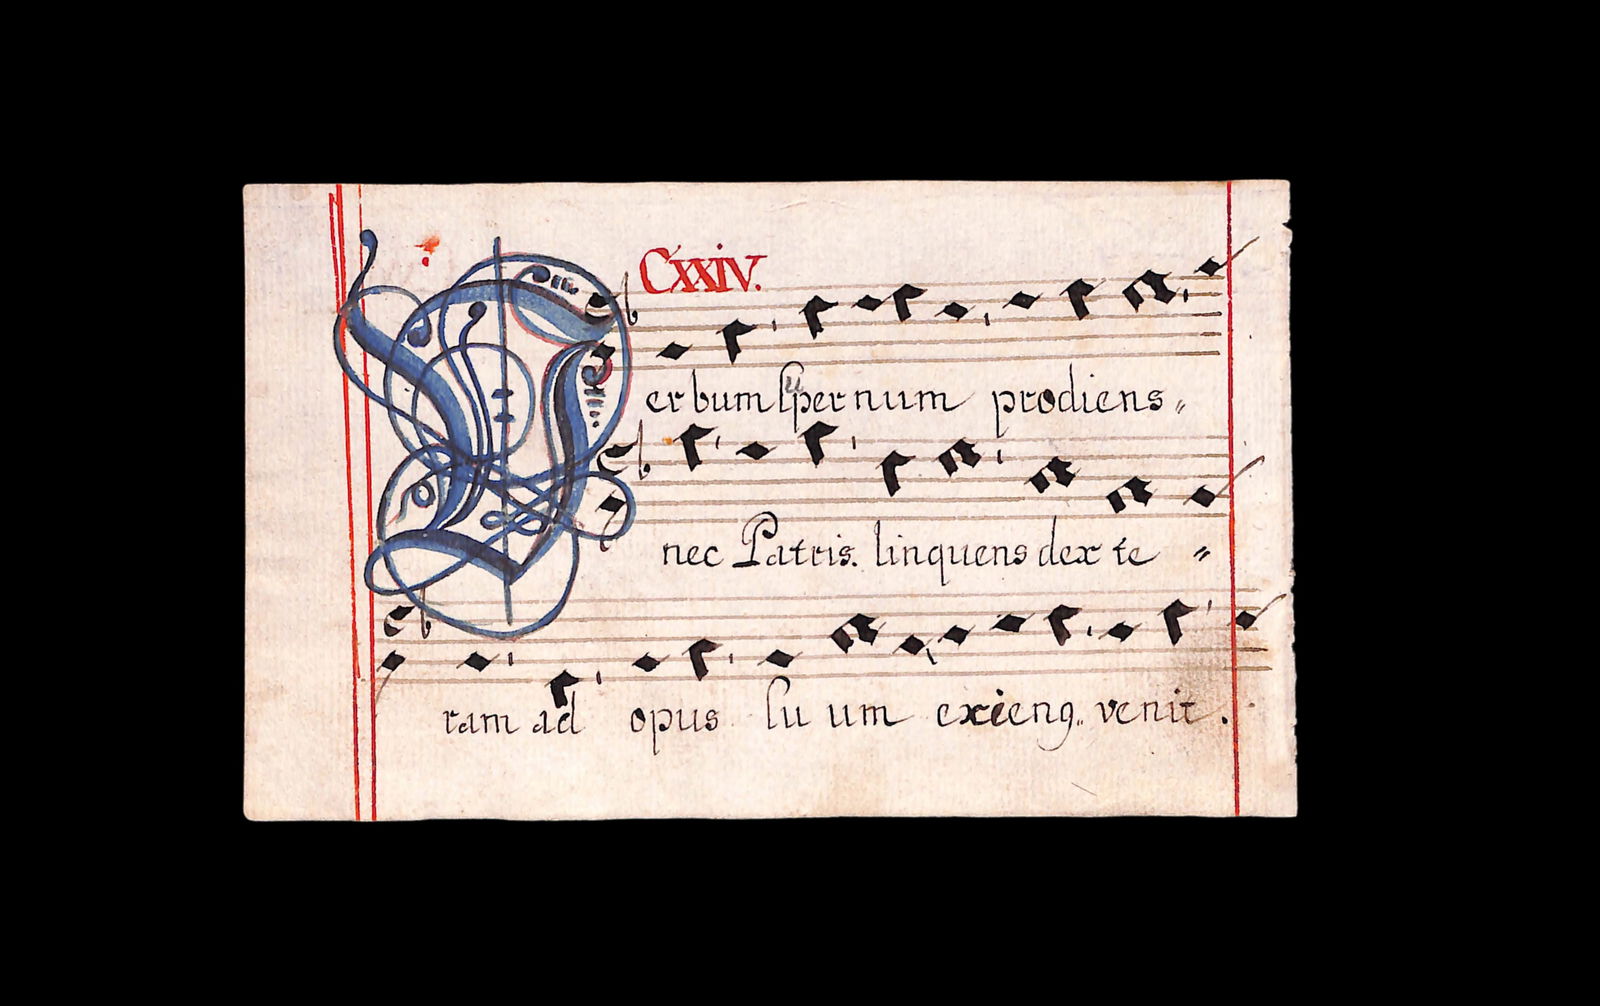 CXXIV.
Verbum supernum prodiens,,
nec Patris. linquens dex te "
ram ad opus su um exieng.. venit.